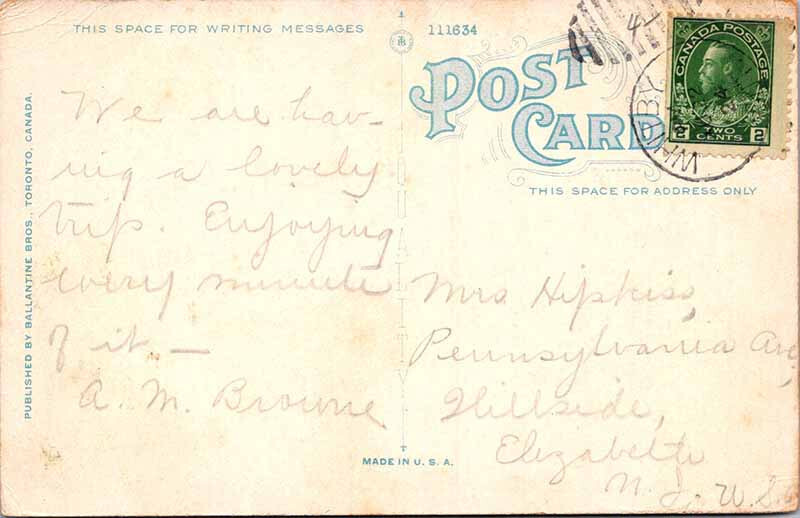 THIS SPACE FOR WRITING MESSAGES
111634
POST
CARD
THIS SPACE FOR ADDRESS ONLY
CANADA POSTAGE
2 TWO CENTS 2
WHITBY
PUBLISHED BY BALLANTINE BROS., TORONTO, CANADA.
We are hav-
ing a lovely
trip. Enjoying
every minute
of it —
A. M. Browne
Mrs Hipkiss,
Pennsylvania Ave,
Hillside,
Elizabeth
N. J. U.S.
MADE IN U. S. A.